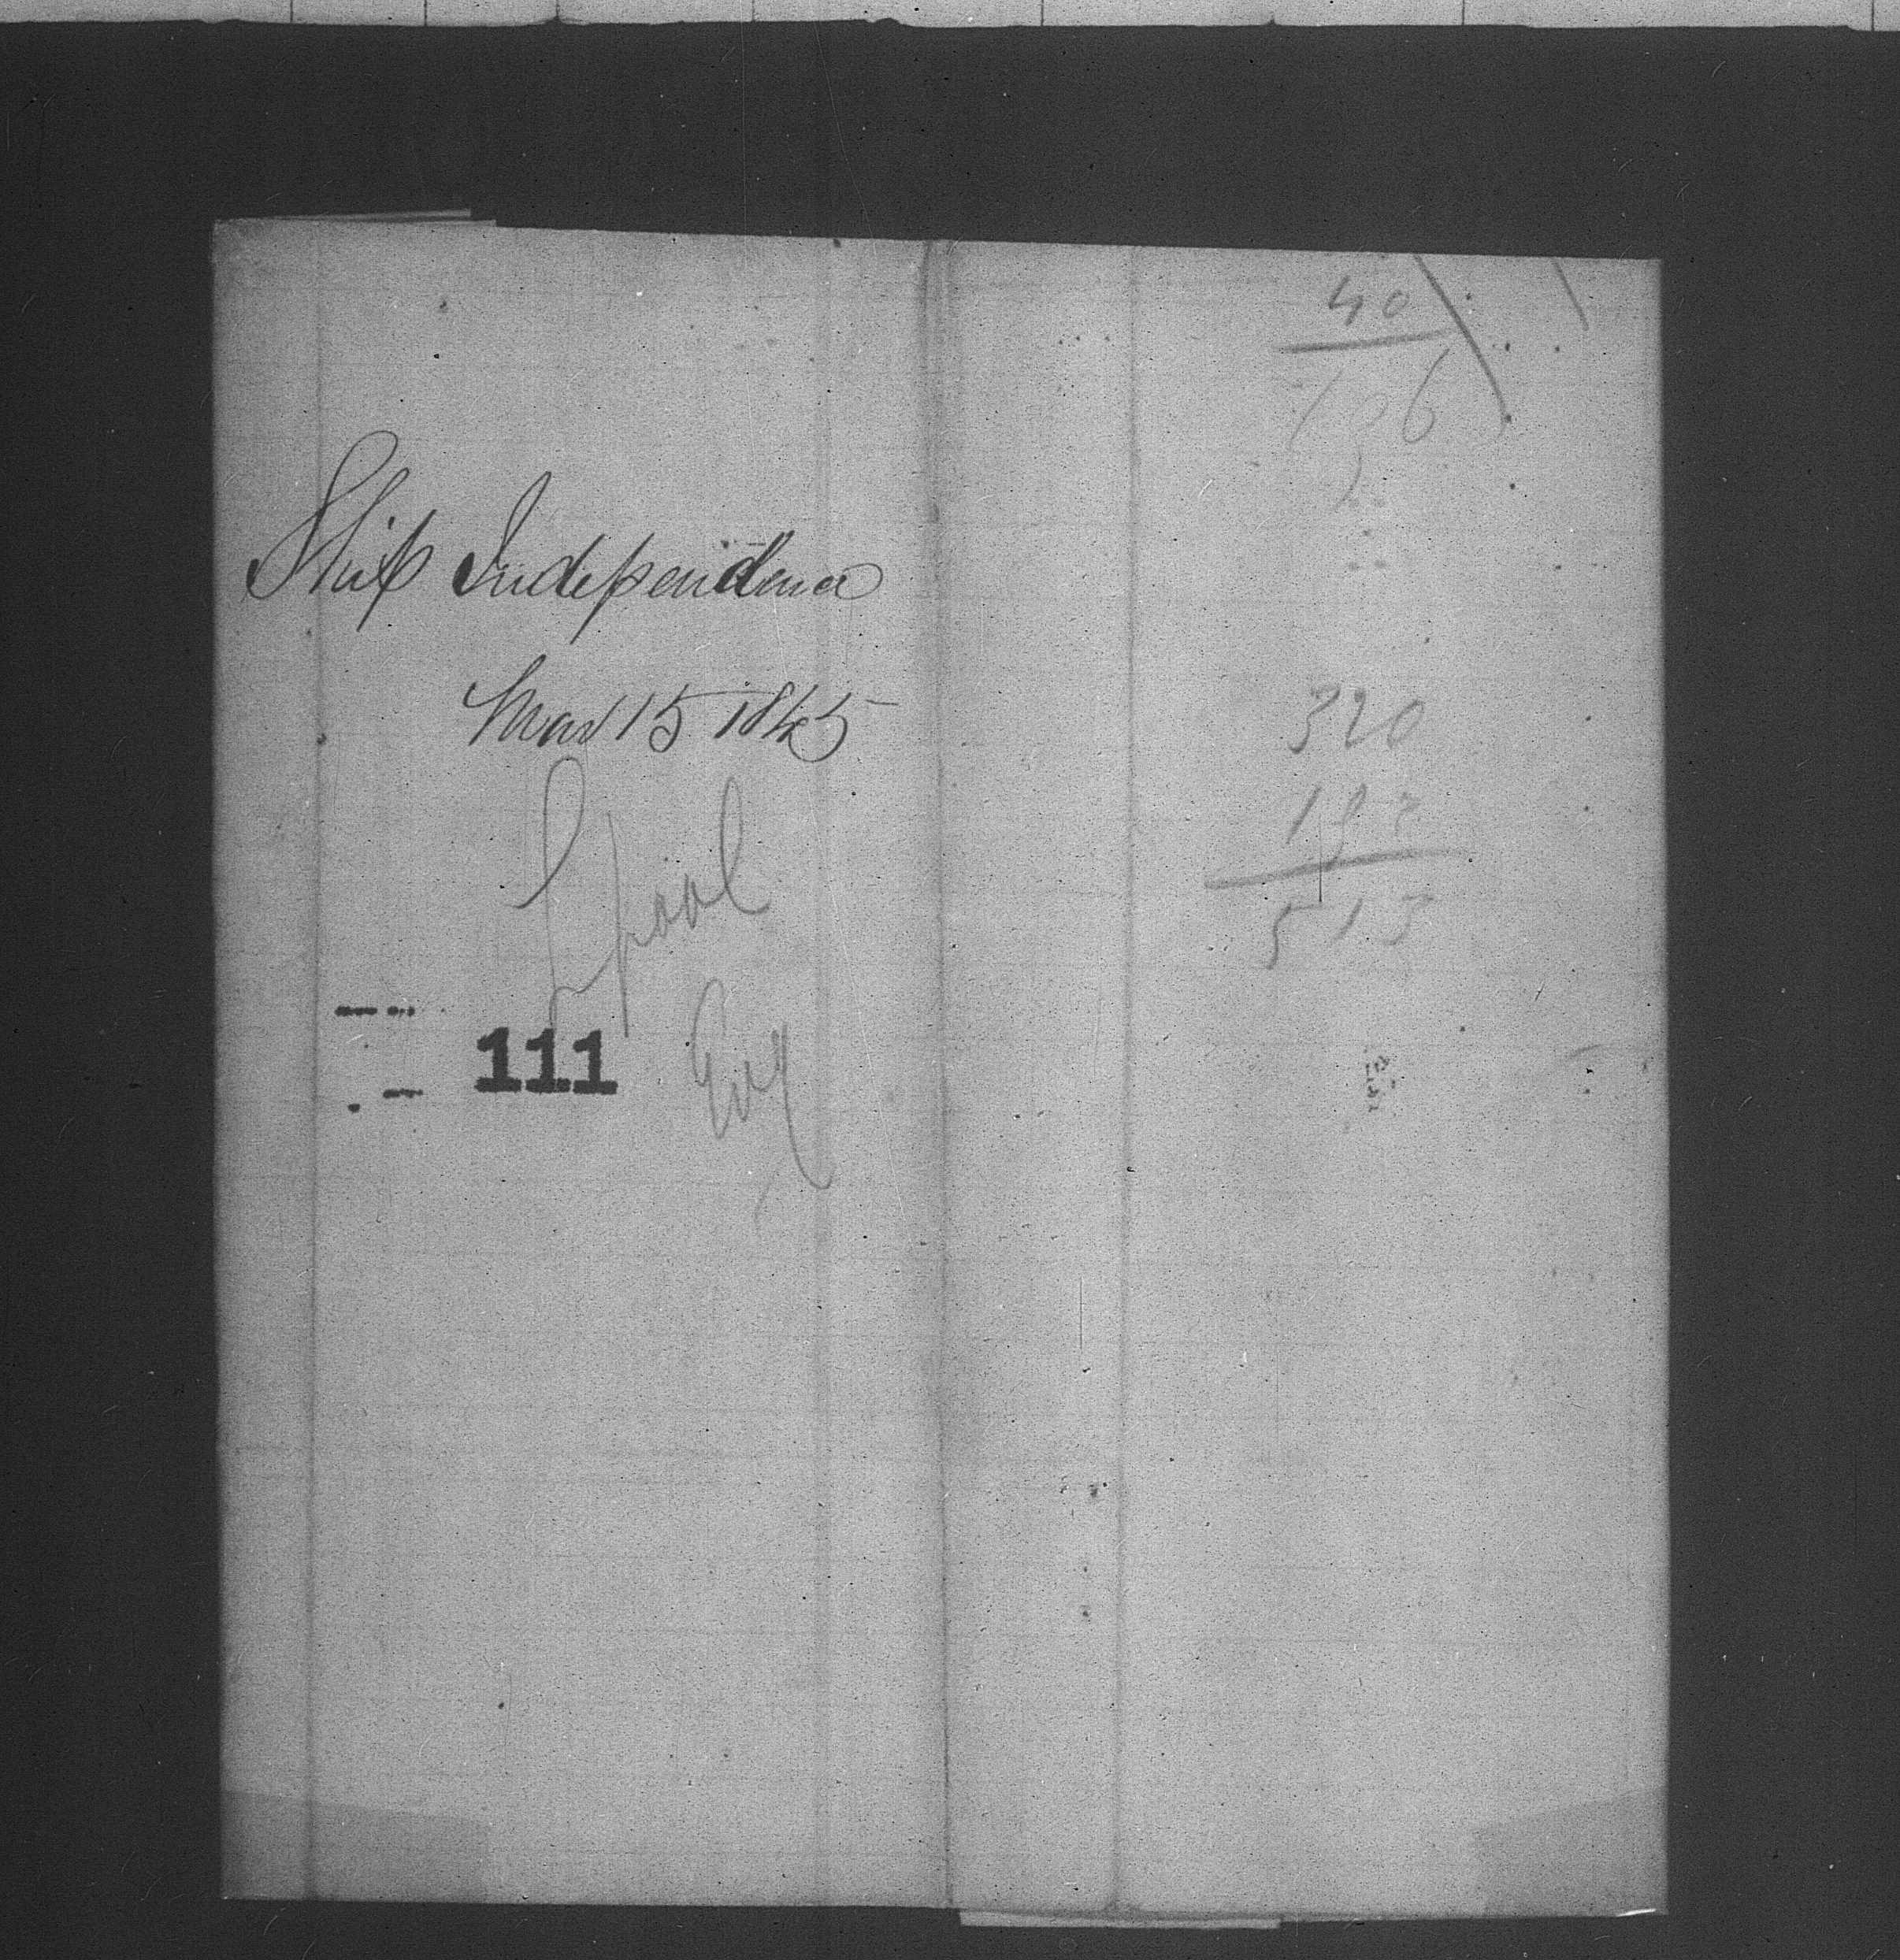 Ship Independence
Mar 15 1845
Lpool
111
Eng
40
106
320
193
513